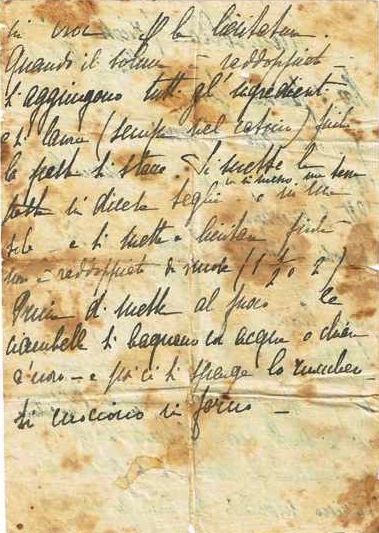 in croce e la lievitatura.
Quando il volume è raddoppiato
si aggiungono tutti gl'ingredienti
e si lavora (sempre nel catino) finché
la pasta si stacca. Si mette la
pasta in dieci
e si mette a lievitare finché
non è raddoppiato di mole (1 ½ o 2)
Prima di mettere al fuoco le
ciambelle si bagnano con acqua o chiara
d'uovo e poi ci si sparge lo zucchero
si cuociono in forno